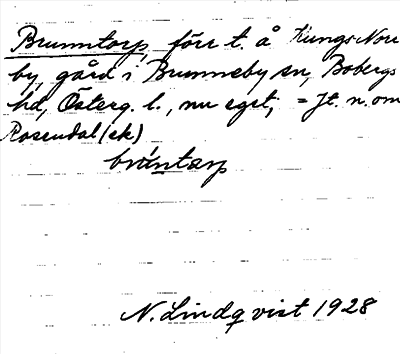 Brunntorp, förr t. å Kungs Norr
by, gård i Brunneby sn, Bobergs
hd, Österg. l., nu eget; = Jt. n. om
Rosendal (ek)
bruntərp
N. Lindqvist 1928